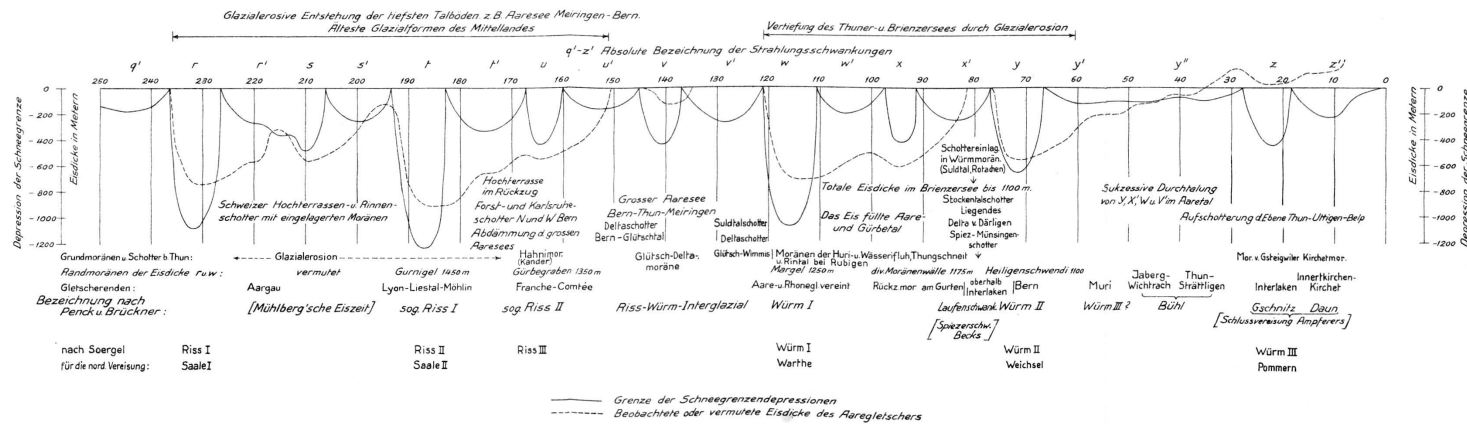 Glazialerosive Entstehung der tiefsten Talböden z.B. Aaresee Meiringen-Bern.
Älteste Glazialformen des Mittellandes
Vertiefung des Thuner-u. Brienzersees durch Glazialerosion
q'-z' Absolute Bezeichnung der Strahlungsschwankungen
q' r r' s s' t t' u u' v v' w w' x x' y y' y'' z z')
260 240 230 220 210 200 190 180 170 160 150 140 130 120 110 100 90 80 70 60 50 40 30 20 10 0
Depression der Schneegrenze
Eisdicke in Metern
0
-200
-400
-600
-800
-1000
-1200
Schweizer Hochterrassen-u. Rinnen-
schotter mit eingelagerten Moränen
Hochterrasse
im Rückzug
Forst- und Karlsruhe-
schotter N und W Bern
Abdämmung d. grossen
Aaresees
Grosser Aaresee
Bern-Thun-Meiringen
Deltaschotter
Bern-Glütschtal
Suldtalschotter
Deltaschotter
Glütsch-Wimmis
Totale Eisdicke im Brienzersee bis 1100 m.
Das Eis füllte Aare-
und Gürbetal
Schottereinlag.
in Würmmorän.
(Suldtal, Rotachen)
Stockentalschotter
Liegendes
Delta v. Därligen
Spiez-Münsingen-
schotter
Sukzessive Durchtalung
von Y, X', W u. V' im Aaretal
Aufschotterung d. Ebene Thun-Uttigen-Belp
0
-200
-400
-600
-800
-1000
-1200
Eisdicke in Metern
Depression der Schneegrenze
Grundmoränen u. Schotter b. Thun: Glazialerosion Hahnimor. (Kander) Glütsch-Delta-
moräne Moränen der Huri-u. Wässerifluh, Thungschneit
u. Rintal bei Rubigen Mor. v. Gsteigwiler Kirchetmor.
Randmoränen der Eisdicke r u. w: vermutet Gurnigel 1450 m Gürbegraben 1350 m Margel 1250 m div. Moränenwälle 1175 m Heiligenschwendi 1100
Gletscherenden: Aargau Lyon-Liestal-Möhlin Franche-Comtée Aare-u. Rhonegl vereint Rückz mor am Gurten oberhalb
Interlaken Bern Muri Jaberg-
Wichtrach Thun-
Strättligen Interlaken Innertkirchen-
Kirchet
Bezeichnung nach
Penck u. Brückner: [Mühlberg'sche Eiszeit] sog. Riss I sog. Riss II Riss-Würm-Interglazial Würm I Laufenschwank. Würm II Würm III ? Bühl Gschnitz Daun
[Spiezerschw.
Becks] [Schlussvereisung Ampferers]
nach Soergel Riss I Riss II Riss III Würm I Würm II Würm III
für die nord. Vereisung: Saale I Saale II Warthe Weichsel Pommern
Grenze der Schneegrenzendepressionen
Beobachtete oder vermutete Eisdicke des Aaregletschers